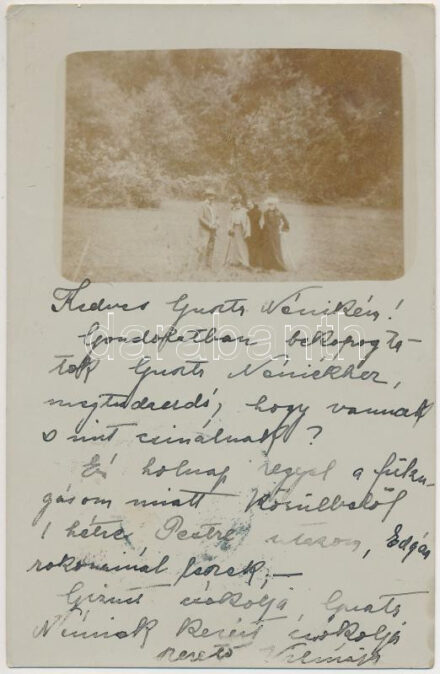 Kedves Gusta Nénikém!
Gondolatban bekopogta-
tok Gusta Néniékhez,
megtudandó, hogy vannak
s mit csinálnak?
Én holnap reggel a fülzu-
gásom miatt körülbelől
1 hétre Pestre utazom, Edgár
rokonainál leszek. —
Gizust csókolja, Gusta
Néninek kezeit csókolja
szerető Vilmája
darabanth